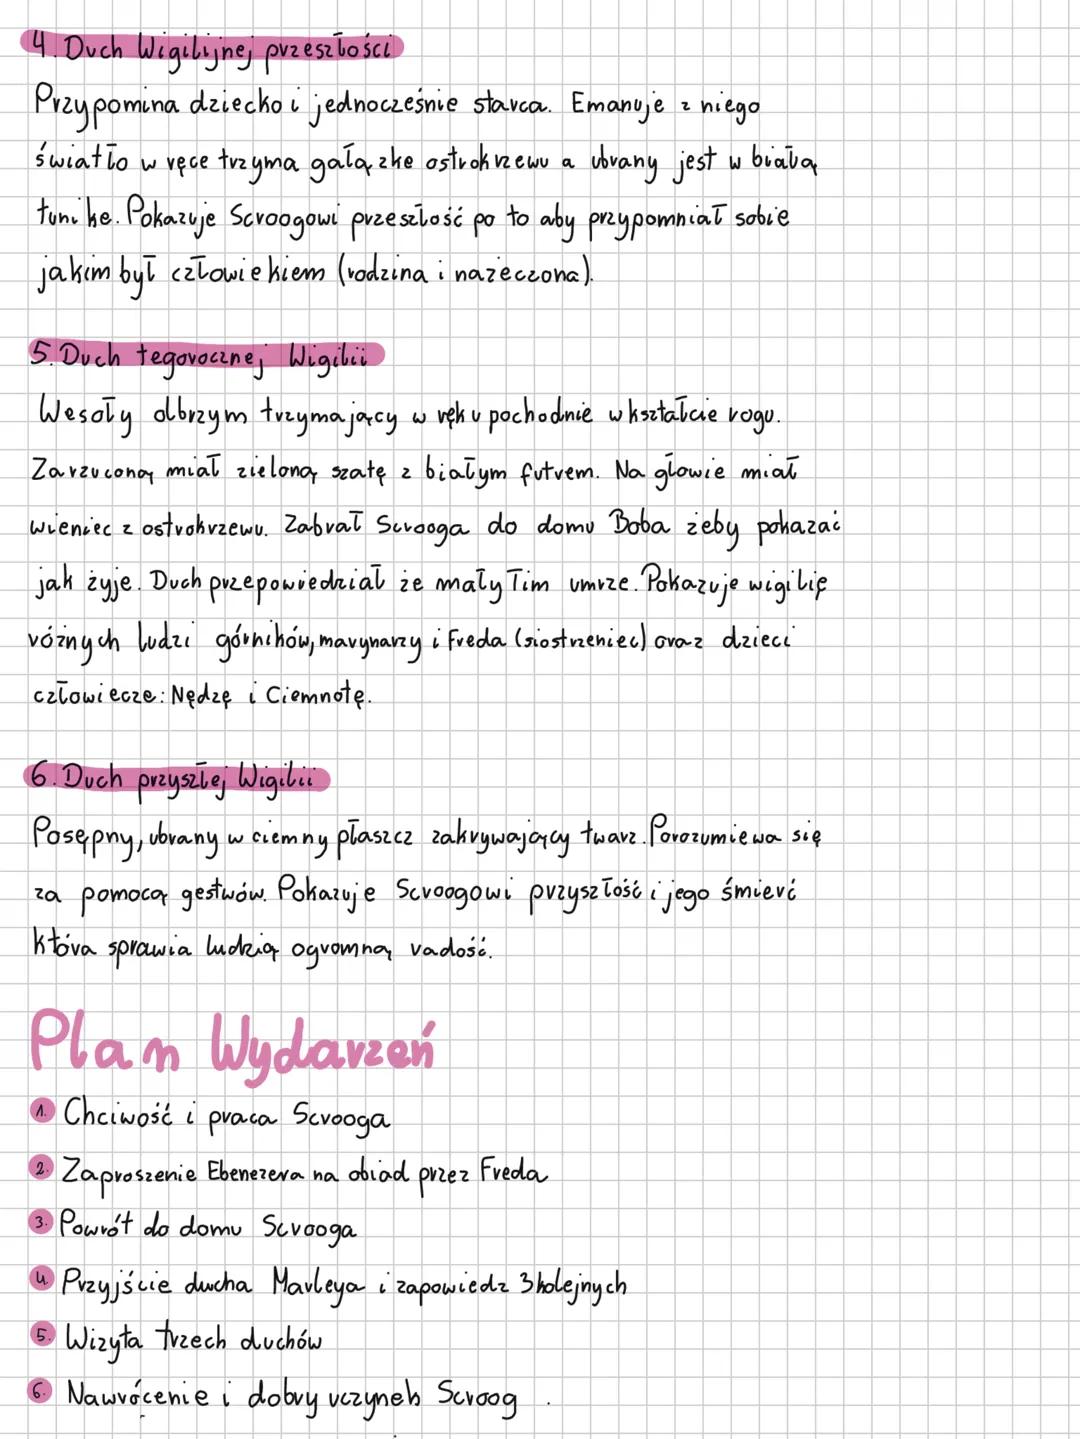 4. Duch Wigilijnej przeszłości
Przypomina dziecko i jednocześnie starca. Emanuje z niego
światło w ręce trzyma gałązke ostrokrzewu a ubrany jest w białą
tunike. Pokazuje Scroogowi przeszłość po to aby przypomniał sobie
jakim był człowiekiem (rodzina i nażeczona).
5. Duch tegorocznej Wigilii
Wesoły olbrzym trzymający w ręku pochodnie w kształcie rogu.
Zarzuconą miał zieloną szatę z białym futrem. Na głowie miał
wieniec z ostrokrzewu. Zabrał Scrooga do domu Boba żeby pokazać
jak żyje. Duch przepowiedział że mały Tim umrze. Pokazuje wigilię
różnych ludzi górników, marynarzy i Freda (siostrzeniec) oraz dzieci
człowiecze: Nędzę i Ciemnotę.
6. Duch przyszłej Wigilii
Posępny, ubrany w ciemny płaszcz zakrywający twarz. Porozumiewa się
za pomocą gestwów. Pokazuje Scroogowi przyszłość i jego śmierć
która sprawia ludzią ogromną radość.
Plan Wydarzeń
1. Chciwość i praca Scrooga
2. Zaproszenie Ebenezera na obiad przez Freda
3. Powrót do domu Scrooga
4. Przyjście ducha Marleya i zapowiedz 3 kolejnych
5. Wizyta trzech duchów
6. Nawrócenie i dobry uczynek Scroog